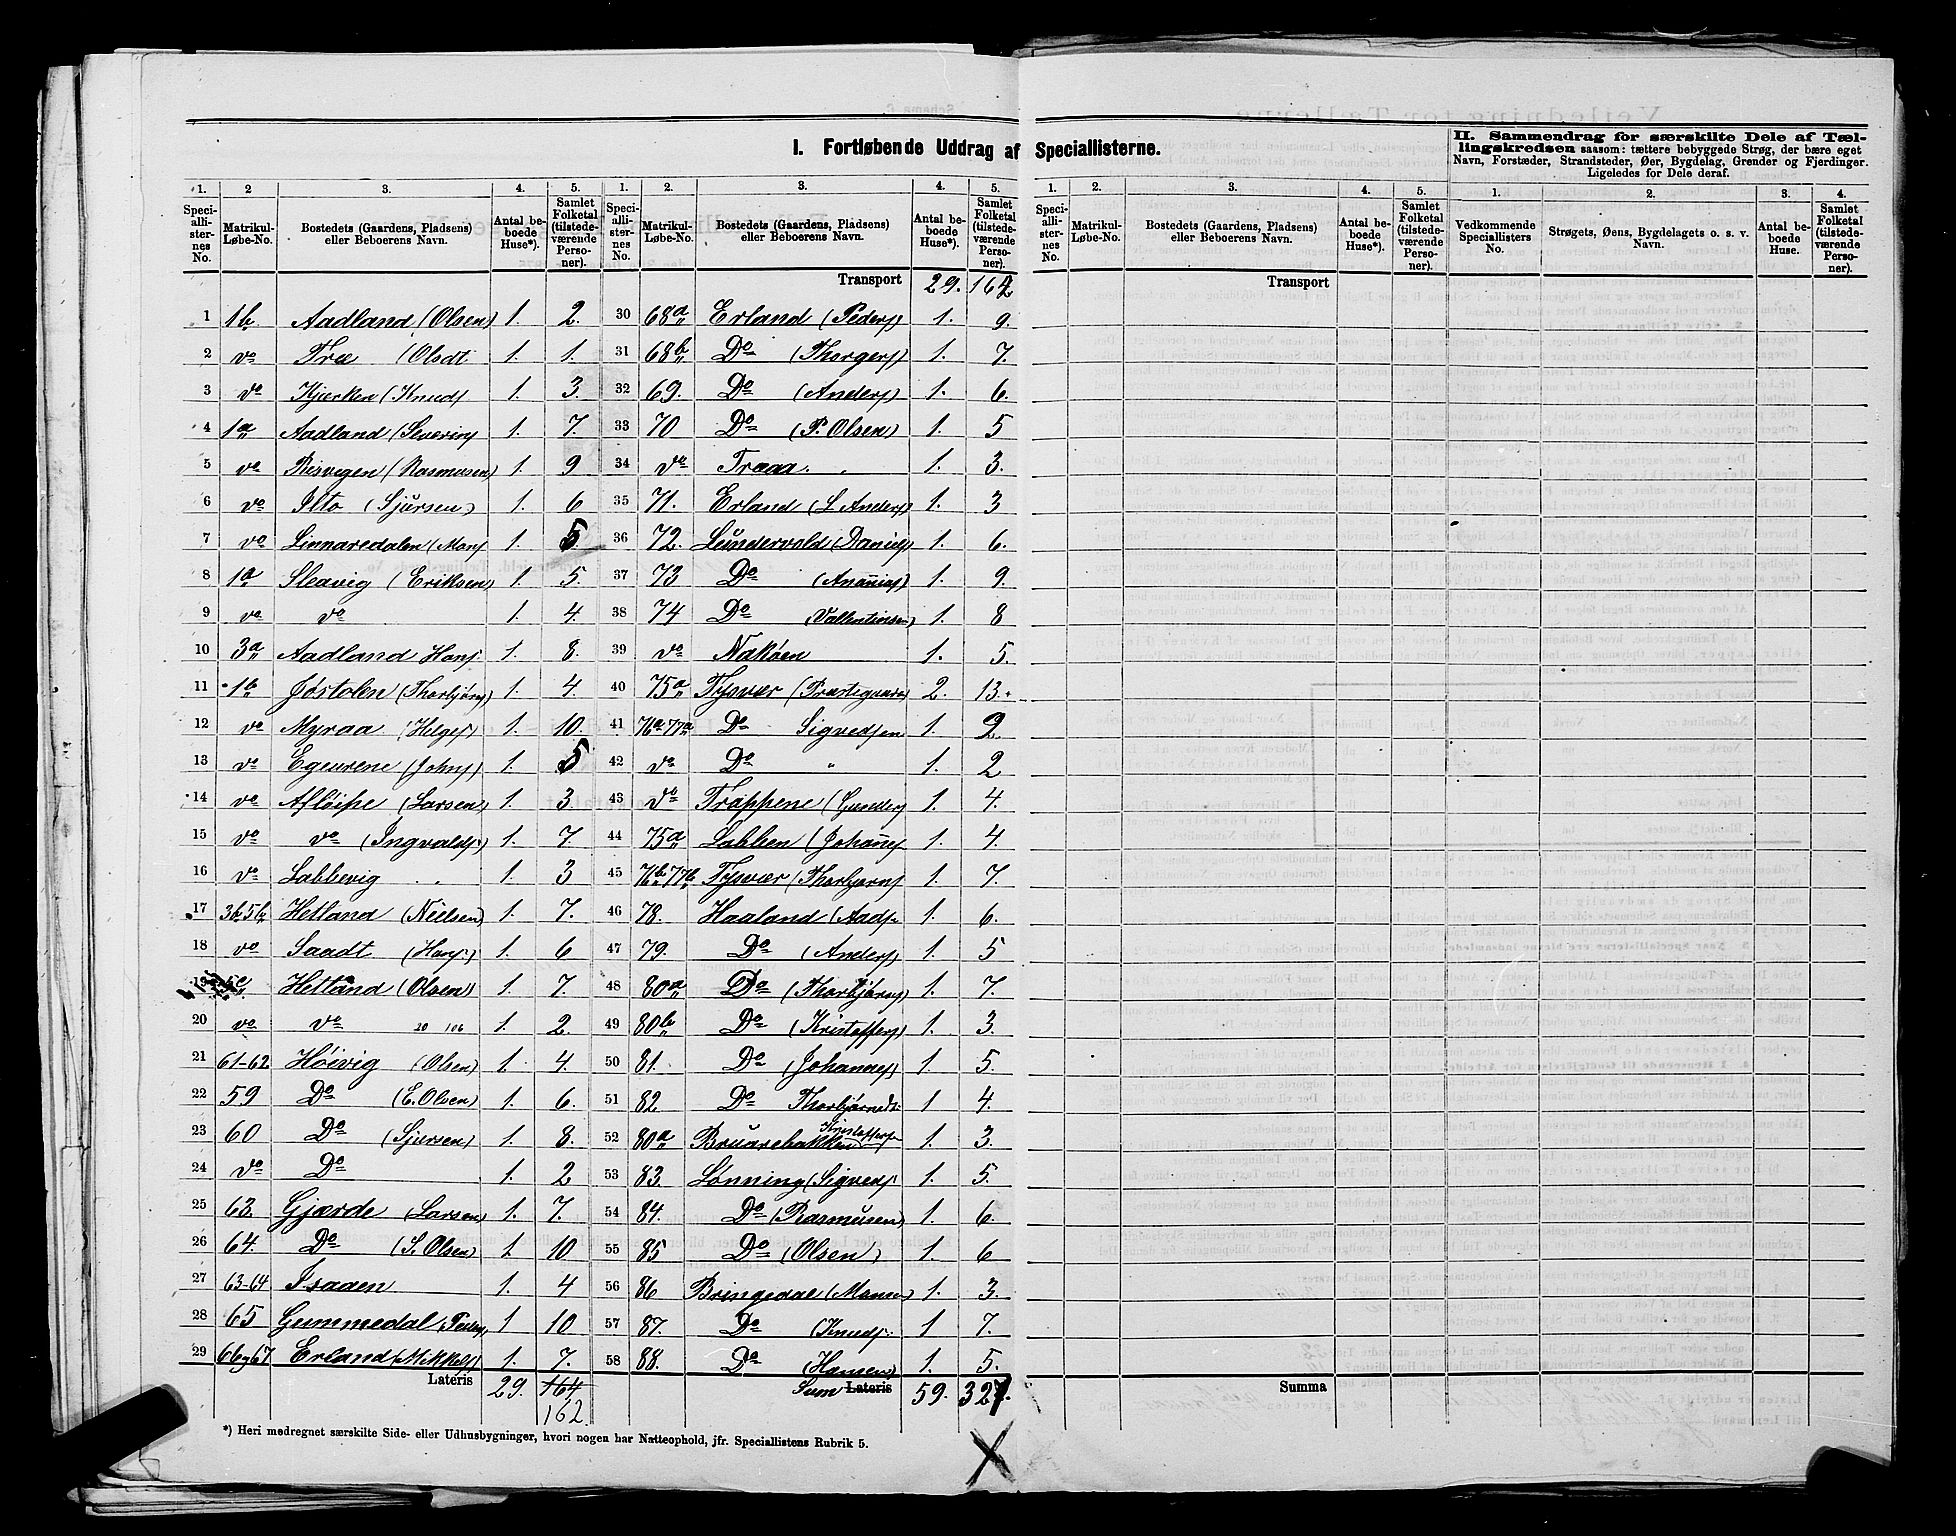 I. Fortløbende Uddrag af Speciallisterne.
II. Sammendrag for særskilte Dele af Tællingskredsen saasom: tættere bebyggede Strøg, der bære eget
Navn, Forstæder, Strandsteder, Øer, Bygdelag, Grender og Fjerdinger.
Ligeledes for Dele deraf.
1. 2 3. 4. 5. 1. 2. 3. 4. 5. 1. 2. 3. 4. 5. 1. 2. 3. 4.
Speciallisternes No. Matrikul-Løbe-No. Bostedets (Gaardens, Pladsens) eller Beboerens Navn. Antal beboede Huse*). Samlet Folketal (tilstedeværende Personer).
Speciallisternes No. Matrikul-Løbe-No. Bostedets (Gaardens, Pladsens) eller Beboerens Navn. Antal beboede Huse*). Samlet Folketal (tilstedeværende Personer).
Speciallisternes No. Matrikul-Løbe-No. Bostedets (Gaardens, Pladsens) eller Beboerens Navn. Antal beboede Huse*). Samlet Folketal (tilstedeværende Personer).
Vedkommende Speciallisters No. Strøgets, Øens, Bygdelagets o. s. v. Navn. Antal beboede Huse. Samlet Folketal (tilstedeværende Personer).
1 1b Aadland (Olsen) 1. 2.
2 do Træ (Olsdt 1. 1.
3 do Kjærken (Knuds 1. 3.
4 1a Aadland (Severins 1. 7.
5 do (Rasmusen) 1. 9
6 do Ilto (Sjursen) 1. 6
7 do Linnaredalen (Mons 1. 5.
8 1a Sleavig (Eriksen) 1. 5.
9 do do 1. 4.
10 3a Aadland Hans. 1. 8.
11 1b Jøstolen (Thorbjørns) 1. 4.
12 do Myraa (Helges) 1. 10.
13 do Egeurene (Johns) 1. 5
14 do Afløipe (Larsen) 1. 3
15 do do (Ingvalds.) 1. 7.
16 do Labbevig 1. 3
17 3b,5b Hetland (Nielsen) 1. 7.
18 do Saadt (Hans.) 1. 6
19 Hetland (Olsen) 1. 7.
20 do do 20 106 1. 2
21 61-62 Høivig (Olsen) 1. 4.
22 59 Do (E. Olsen) 1. 6.
23 60 Do (Sjursen) 1. 8.
24 do Do 1. 2
25 63. Gjærde (Larsen) 1. 7.
26 64. Do (S. Olsen) 1 10
27 63-64 Isaaen 1. 4
28 65 Gummedal 1 10
29 66,67 Erland (Mikkels) 1. 7.
Lateris 29. 164
162.
Transport 29. 162
30 68a Erland (Peders) 1. 9.
31 68b Do (Thorgers) 1. 7.
32 69. Do (Anders) 1. 6.
33 70 Do (P. Olsen) 1. 5
34 do Træaa. 1. 3.
35 71. Erland (L Anders) 1. 3
36 72. Lundervold (Daniels) 1. 6.
37 73 Do (Ananias) 1. 9.
38 74 Do (Vallentinsen) 1. 8
39 do Nakøen 1. 5.
40 75a Tysvær (Præstegaard) 2. 13.
41 76a 77a Do Sigvedsen 1. 2
42 do Do " 1. 2
43 do Trappene (Gunders 1. 4.
44 75a Labben (Johannes 1. 4.
45 76b 77b Tysvær (Thorbjørns 1. 7.
46 78. Haaland (Aads. 1. 6.
47 79. Do (Anders) 1. 5
48 80a Do (Thorbjørns) 1. 7.
49 80b Do (Kristoffers) 1. 3.
50 81. Do (Johannes) 1. 5
51 82 Do Thorbjørnsd. 1 4.
52 80a Bruarebakken Kristoffersen 1 3.
53 83. Lønning (Sigveds. 1. 5.
54 84. Do (Rasmusen) 1. 6.
55 85 Do (Olsen) 1. 6
56 86 Bringedal (Monsen) 1. 3.
57 87. Do (Knuds. 1 7.
58 88. Do (Hansen) 1. 5.
Sum Lateris 59. 327.
Transport
Summa
*) Heri medregnet særskilte Side- eller Udhusbygninger, hvori nogen har Natteophold, jfr. Speciallistens Rubrik 5.